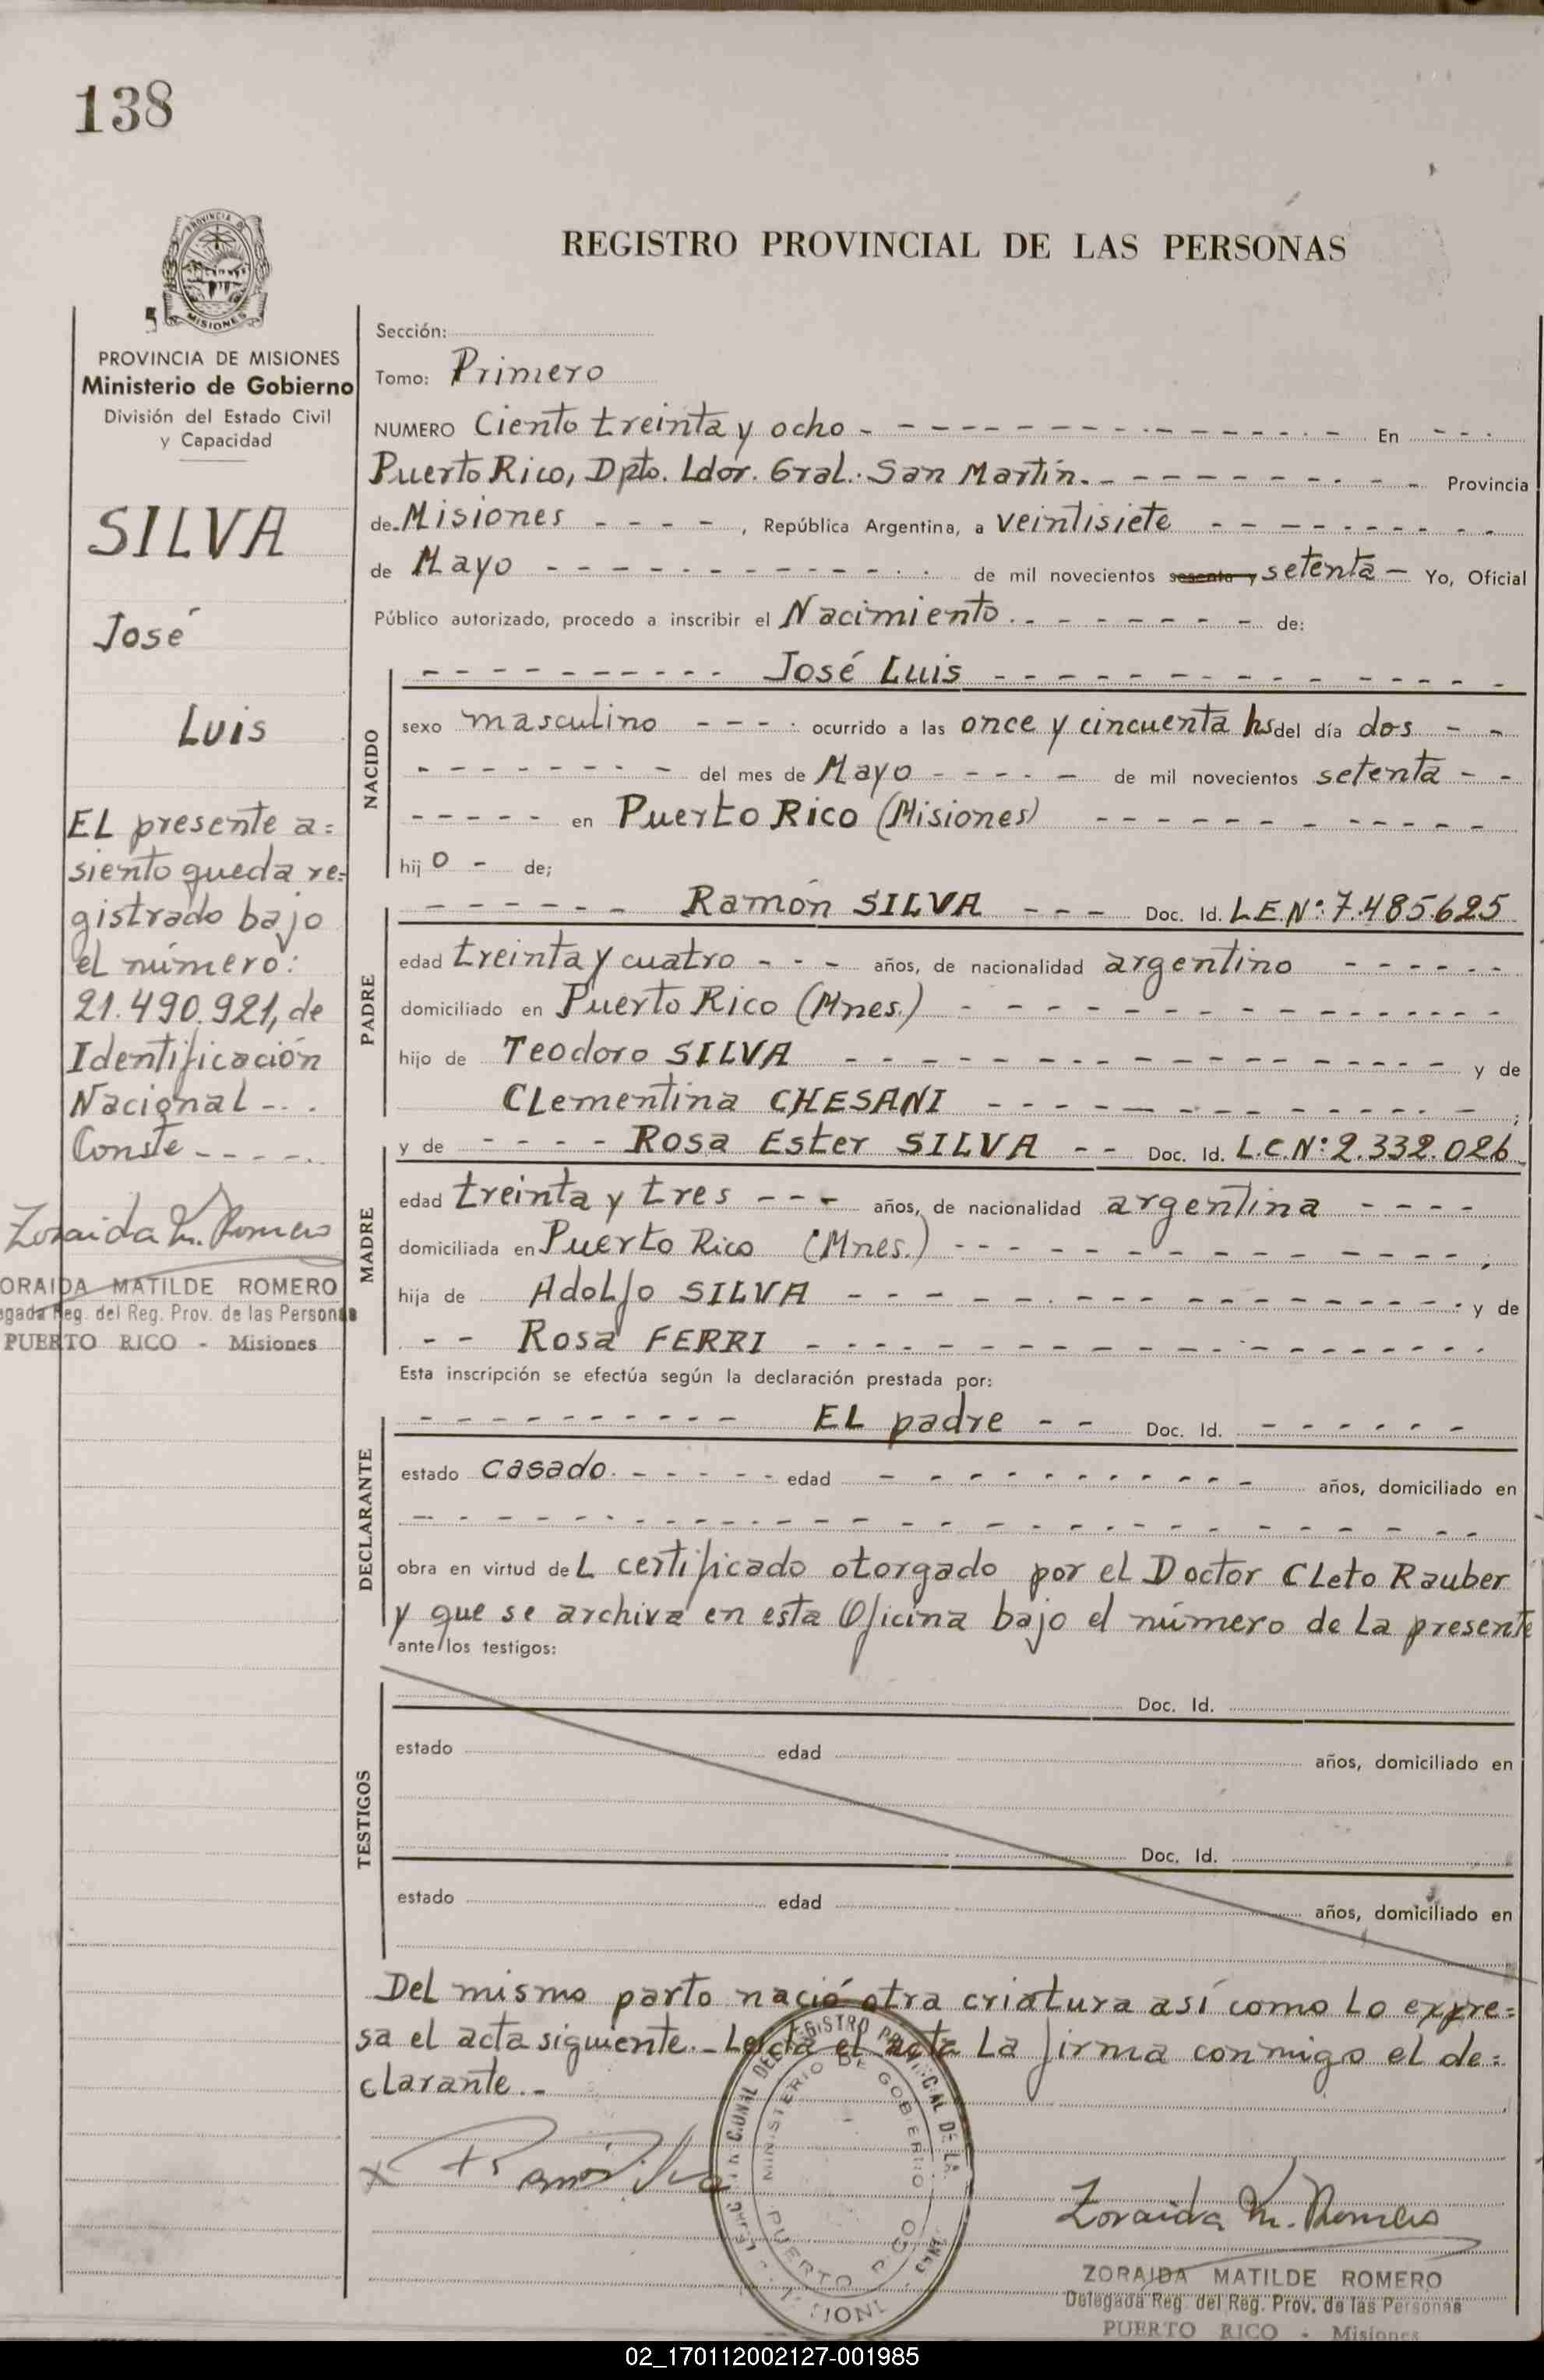 138
REGISTRO PROVINCIAL DE LAS PERSONAS
PROVINCIA DE
MISIONES
5
PROVINCIA DE MISIONES
Ministerio de Gobierno
División del Estado Civil
y Capacidad
SILVA
José
Luis
EL presente a=
siento queda re=
gistrado bajo
el número:
21.490.921, de
Identificación
Nacional - . .
Conste - - - - .
Zoraida M. Romero
ORAIDA MATILDE ROMERO
egada Reg. del Reg. Prov. de las Personas
PUERTO RICO - Misiones
Sección:
Tomo: Primero
NUMERO Ciento treinta y ocho - - - - En - - -
Puerto Rico, Dpto. Ldor. Gral. San Martín. - - - - Provincia
de Misiones - - - - , República Argentina, a veintisiete - - - -
de Mayo - - - - de mil novecientos sesenta y setenta - Yo, Oficial
Público autorizado, procedo a inscribir el Nacimiento. - - - - de:
NACIDO
- - - - José Luis - - - -
sexo masculino - - - - ocurrido a las once y cincuenta hs del día dos - -
- - - - del mes de Mayo - - - - de mil novecientos setenta - -
- - - - en Puerto Rico (Misiones) - - - -
hij o - de;
PADRE
- - - - Ramón SILVA - - - Doc. Id. L.E.Nº: 7.485.625
edad treinta y cuatro - - - años, de nacionalidad argentino - - - -
domiciliado en Puerto Rico (Mnes.) - - - -
hijo de Teodoro SILVA - - - - y de
Clementina CHESANI - - - - ;
MADRE
y de - - - - Rosa Ester SILVA - - Doc. Id. L.C.Nº: 2.332.026
edad treinta y tres - - - años, de nacionalidad argentina - - - -
domiciliada en Puerto Rico (Mnes.) - - - - ,
hija de Adolfo SILVA - - - - y de
- - Rosa FERRI - - - -
Esta inscripción se efectúa según la declaración prestada por:
DECLARANTE
- - - - EL padre - - Doc. Id. - - - -
estado casado. - - - - edad - - - - años, domiciliado en
- - - -
obra en virtud de L certificado otorgado por el Doctor Cleto Rauber
y que se archiva en esta Oficina bajo el número de la presente
ante los testigos:
TESTIGOS
Doc. Id.
estado edad años, domiciliado en
Doc. Id.
estado edad años, domiciliado en
Del mismo parto nació otra criatura así como lo expre=
sa el acta siguiente. - Leída el acta la firma conmigo el de=
clarante. -
REGISTRO PROVINCIAL DE LA
MINISTERIO DE GOBIERNO
PUERTO RICO
x Ramón Silva
Zoraida M. Romero
ZORAIDA MATILDE ROMERO
Delegada Reg. del Reg. Prov. de las Personas
PUERTO RICO - Misiones
02_170112002127-001985